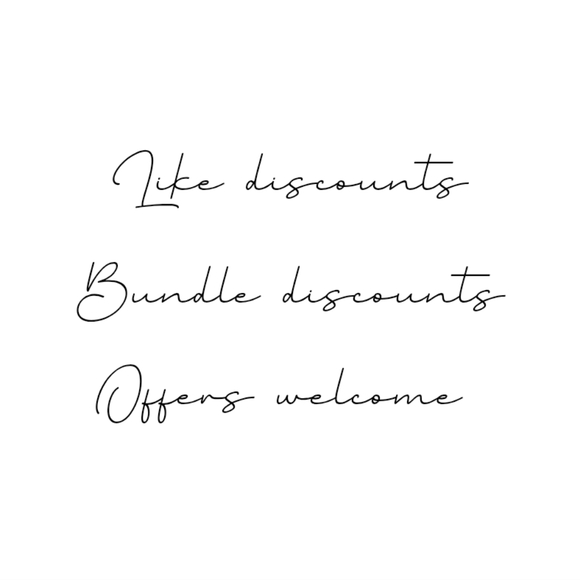 Like discounts
Bundle discounts
Offers welcome